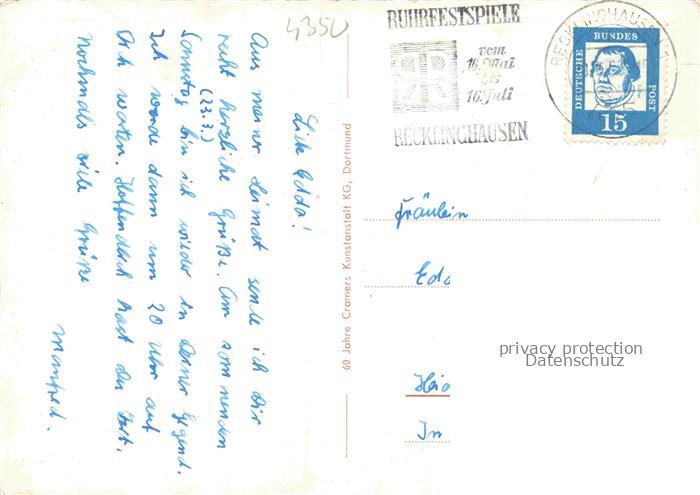 4350
RUHRFESTSPIELE
vom
16. Mai
bis
16. Juli
RECKLINGHAUSEN
RECKLINGHAUSEN
DEUTSCHE BUNDES POST
15
Liebe Edda!
Aus meiner Heimat sende ich Dir
recht herzliche Grüße. Am kommenden
(23.7.)
Sonntag bin ich wieder in Deiner Gegend.
Ich werde dann um 20 Uhr auf
Dich warten. Hoffendlich hast du Zeit.
Nochmals viele Grüße
Manfred.
60 Jahre Cramers Kunstanstalt KG, Dortmund
Fräulein
Edo
privacy protection
Datenschutz
Haio
In